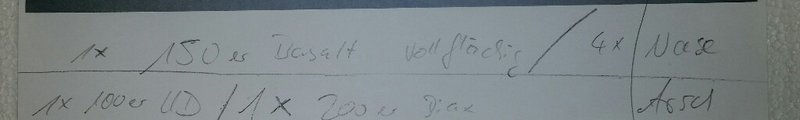 1x 150er Basalt vollflächig / 4x | Nase
1x 100er UD / 1x 200er Biax | Arsch